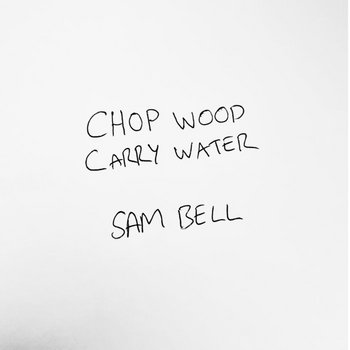 CHOP WOOD
CARRY WATER
SAM BELL